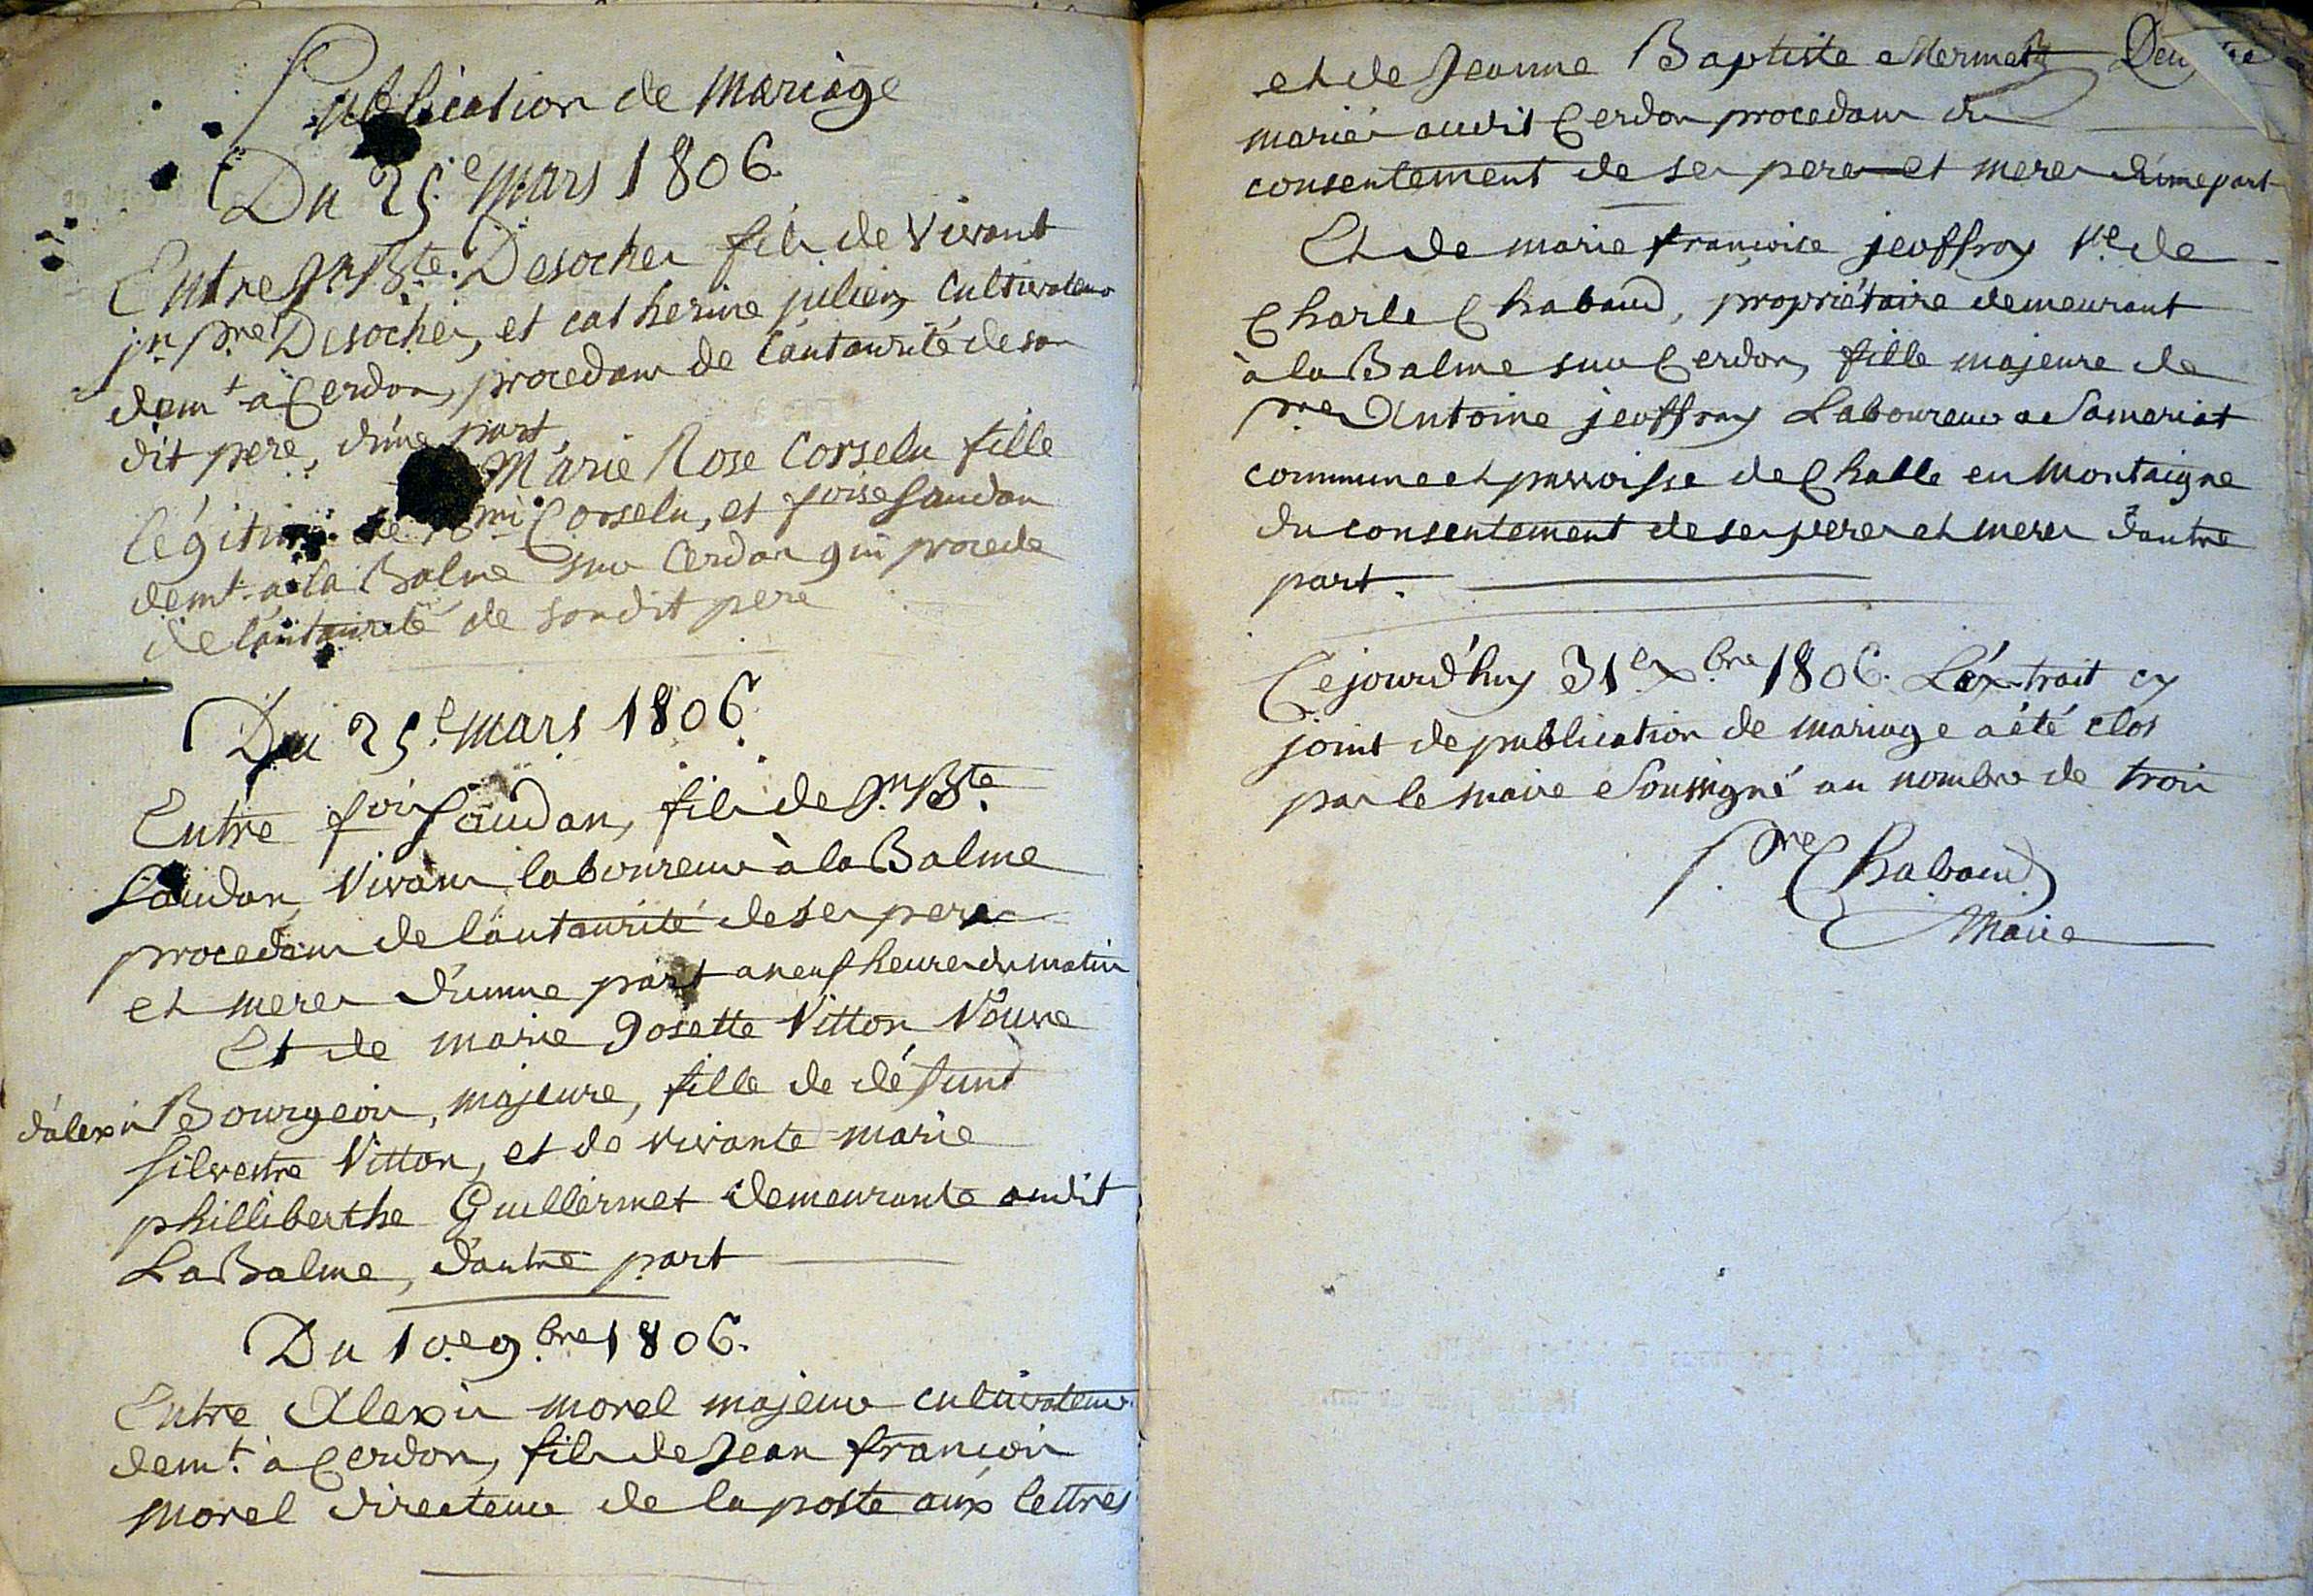 Publication de Mariage
Du 25.e Mars 1806.
Entre Jn Bte. Desoches fils de vivant
jn pre Desoches, et catherine julien, cultivateur
demt. à Cerdon, procedant de l'autaurité de son
dit pere, d'une part,
Marie Rose Corselu fille
légitime de Corselu, et foise Saudan
demt. a la Balme sur Cerdon qui procede
de l'autaurité de sondit pere
Du 25.e Mars 1806.
Entre fois Saudan, fils de Jn Bte.
Saudan, vivans laboureur à la Balme
procedans de l'autaurité de ses peres
et meres d'unne part a neuf heures du matin
Et de marie Josette Vitton Veuve
d'alexis Bourgeois, majeure, fille de défunt
silvestre Vitton, et de vivante marie
philliberthe Guillermet demeurante audit
La Balme, d'autre part
Du 10.e 9.bre 1806.
Entre Alexis morel majeur cultivateur
demt. à Cerdon, fils de Jean françois
morel directeur de la poste aux lettres
et de Jeanne Baptiste Mermetz
mariés audit Cerdon procedans du
consentement de ses peres et meres d'une part
Et de marie françoise jeoffray Ve. de
Charle Chabaud, propriétaire demeurant
à la Balme sur Cerdon, fille majeure de
pre Antoine jeoffray Laboureur a Sameriat
commune et parroisse de Challe en Montaigne
du consentement de ses peres et meres d'autre
part.
Cejourd'huy 31e xbre 1806. L'éxtrait cy
joint de publication de mariage a été clos
par le maire Soussigné au nombre de trois
pre Chabaud
Maire